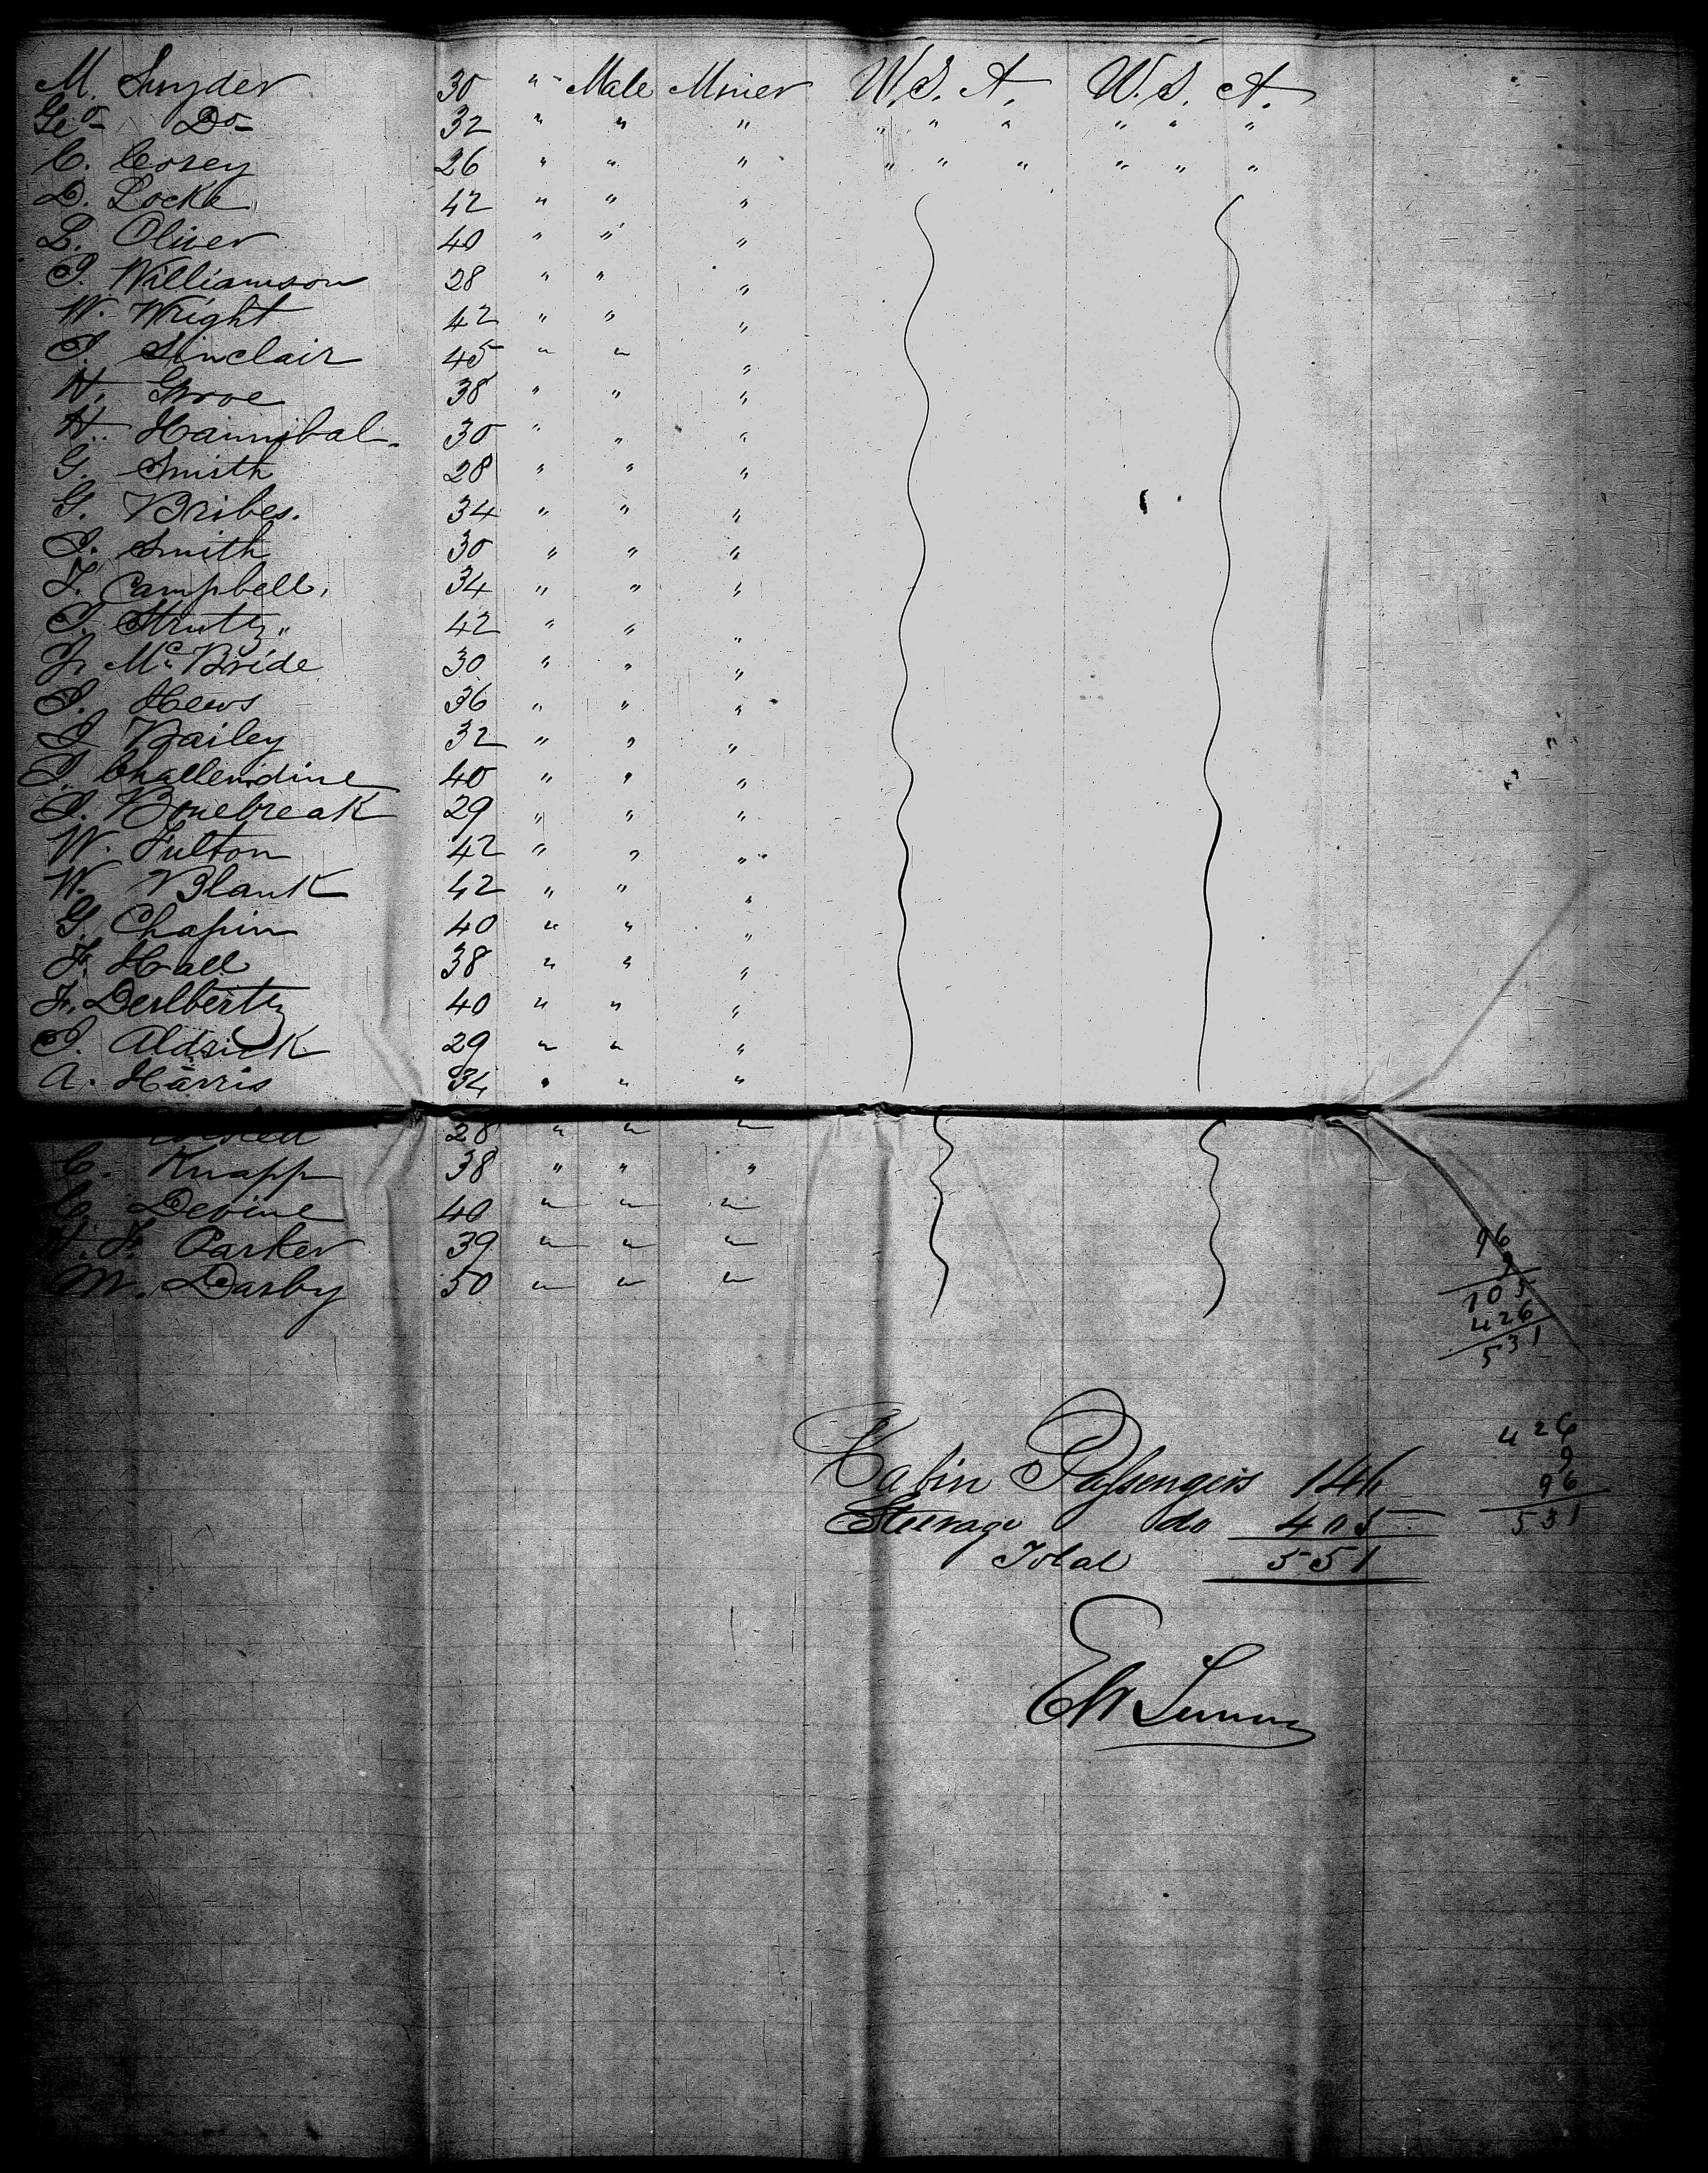 M. Snyder 30 " Male Miner U.S.A. U.S.A.
Geo Do 32 " " " " " " " " "
C. Corey 26 " " " " " " " " "
D. Locke 42 " " "
L. Oliver 40 " " "
J. Williamson 28 " " "
W. Wright 42 " " "
J. Sinclair 45 " " "
H. Grove 38 " " "
H. Hannibal 30 " " "
G. Smith 28 " " "
G. Bribes. 34 " " "
J. Smith 30 " " "
T. Campbell, 34 " " "
J. Strutz " 42 " " "
J. Mc Bride 30 " " "
J. Hews 36 " " "
J. Bailey 32 " " "
J. Challendine 40 " " "
J. Bonebreak 29 " " "
W. Fulton 42 " " "
W. Blank 42 " " "
G. Chapin 40 " " "
F. Hall 38 " " "
F. Deulbertz 40 " " "
J. Aldrick 29 " " "
A. Harris 34 " " "
28 " " "
C. Knapp 38 " " "
C. Devine 40 " " "
F. Parker 39 " " "
M. Darby 50 " " "
96
9
105
426
531
426
9
96
531
Cabin Passengers 146
Steerage do 405
Total 551